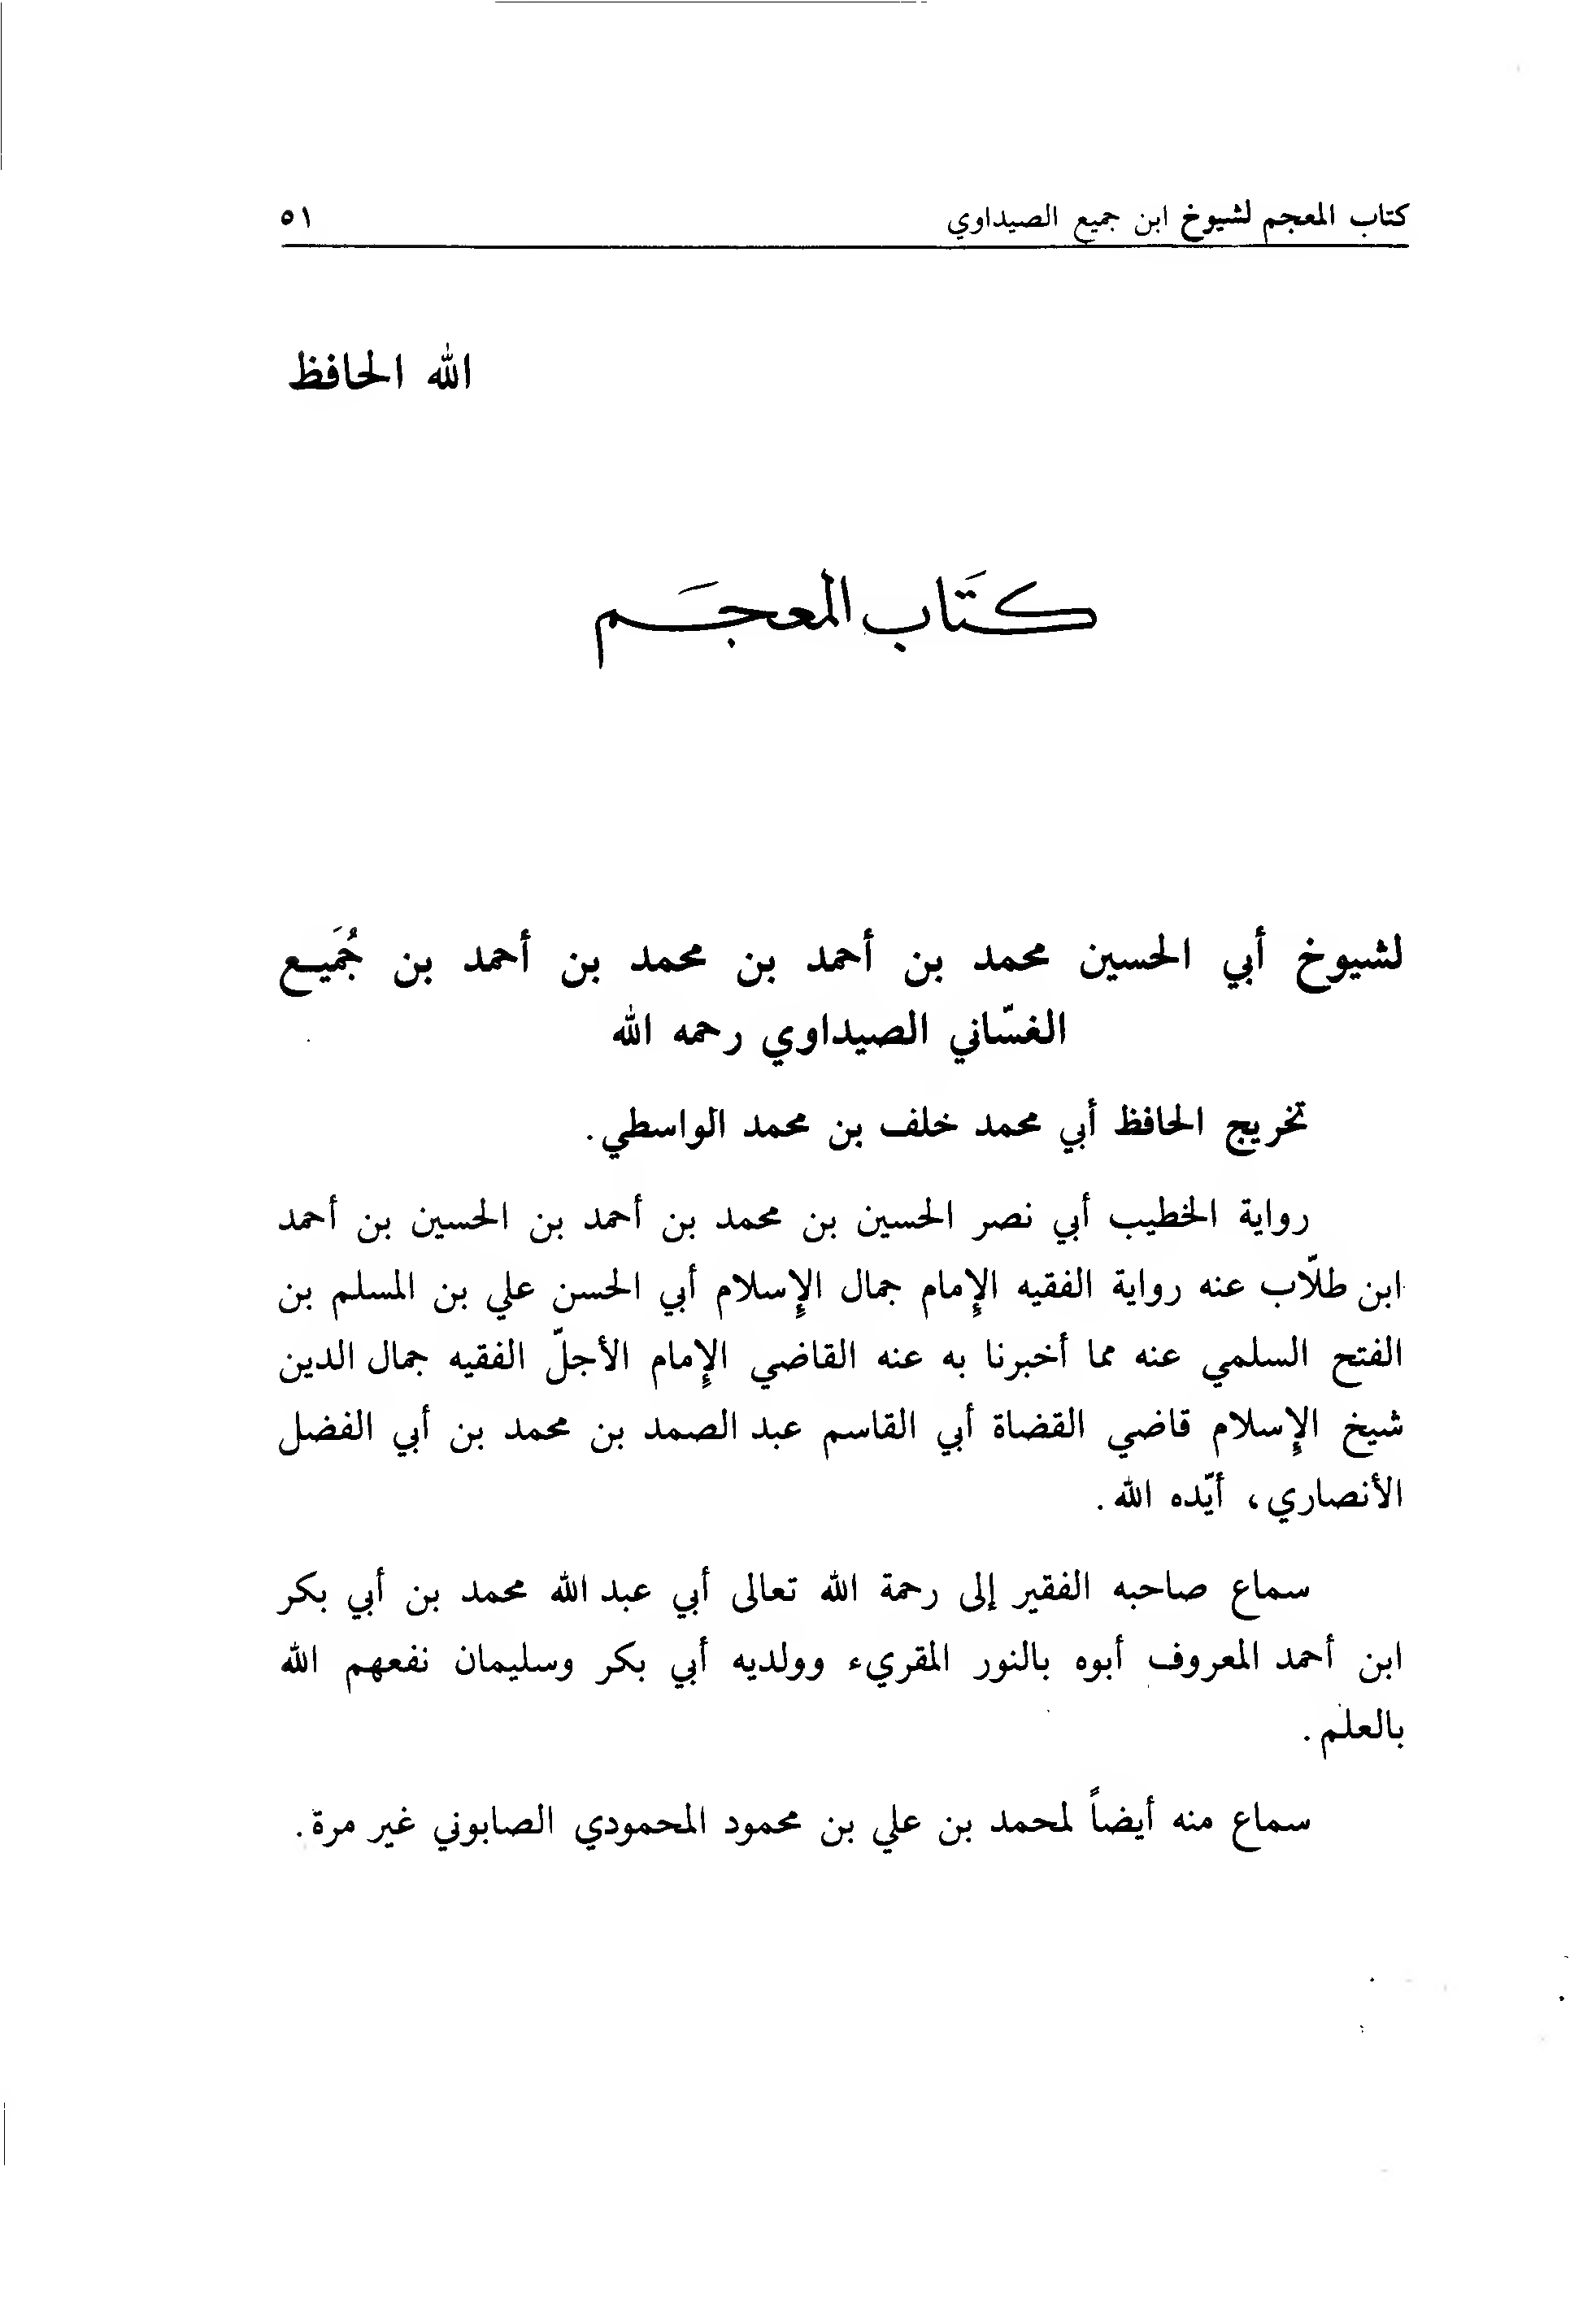 كتاب المعجم لشيوخ ابن جميع الصيداوي ٥١
الله الحافظ
كتَاب المعجَم
لشيوخ أبي الحسين محمد بن أحمد بن محمد بن أحمد بن جُمَيع
الغسّاني الصيداوي رحمه الله
تخريج الحافظ أبي محمد خلف بن محمد الواسطي.
رواية الخطيب أبي نصر الحسين بن محمد بن أحمد بن الحسين بن أحمد
ابن طلّاب عنه رواية الفقيه الإمام جمال الإسلام أبي الحسن علي بن المسلم بن
الفتح السلمي عنه مما أخبرنا به عنه القاضي الإمام الأجلّ الفقيه جمال الدين
شيخ الإسلام قاضي القضاة أبي القاسم عبد الصمد بن محمد بن أبي الفضل
الأنصاري، أيّده الله.
سماع صاحبه الفقير إلى رحمة الله تعالى أبي عبد الله محمد بن أبي بكر
ابن أحمد المعروف أبوه بالنور المقريء وولديه أبي بكر وسليمان نفعهم الله
بالعلم.
سماع منه أيضاً لمحمد بن علي بن محمود المحمودي الصابوني غير مرة.